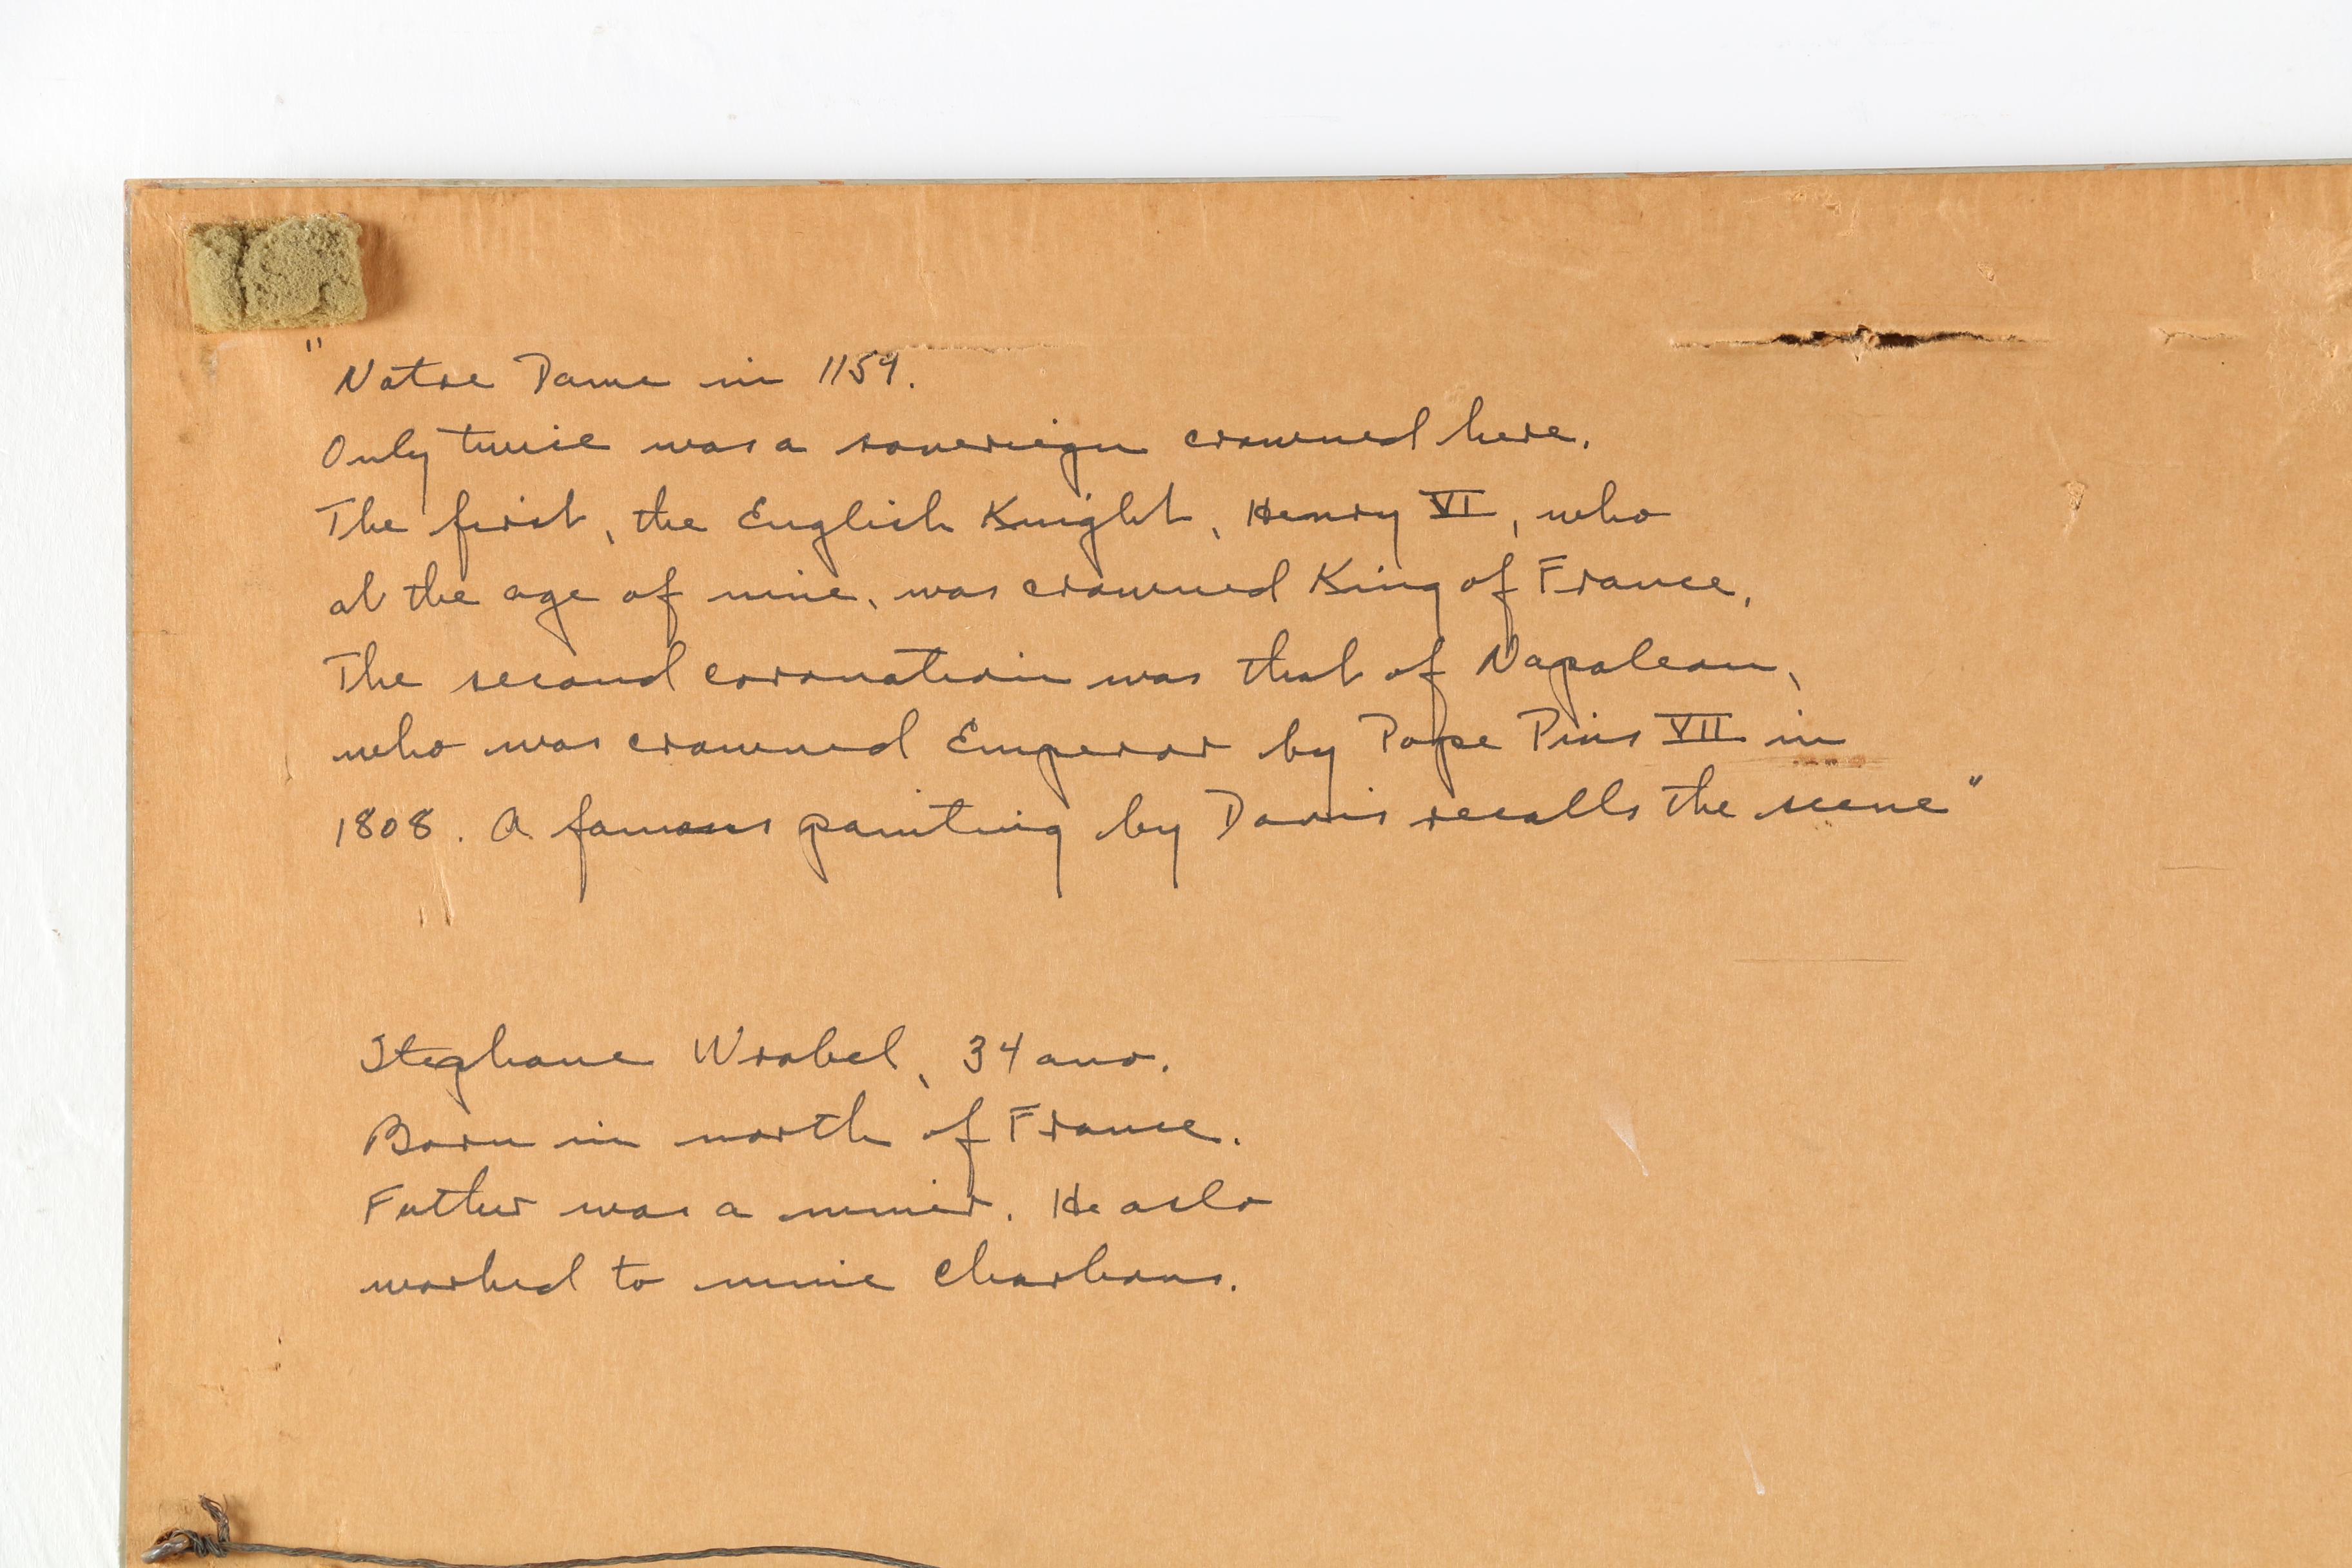 "Notre Dame in 1159.
Only twice was a sovereign crowned here.
The first, the English Knight, Henry VI, who
at the age of nine, was crowned King of France.
The second coronation was that of Napoleon,
who was crowned Emperor by Pope Pius VII in
1808. A famous painting by Davis recalls the scene"
Stephane Wrobel, 34 ano.
Born in north of France.
Father was a miner. He aslo
worked to mine charbons.